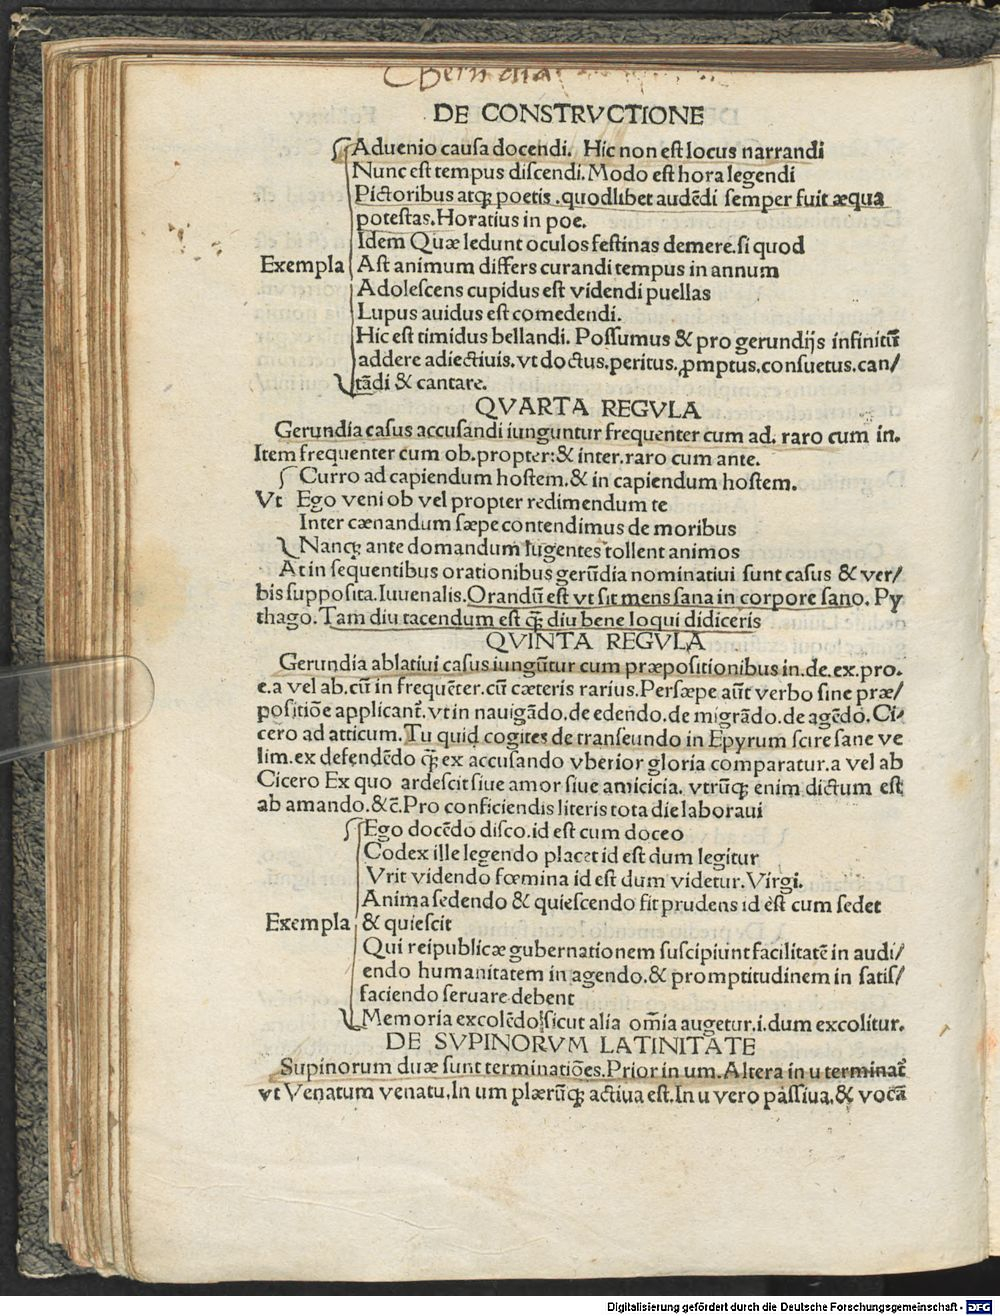 DE CONSTRVCTIONE
Aduenio causa docendi. Hic non est locus narrandi
Nunc est tempus discendi. Modo est hora legendi
Pictoribus atqꝫ poetis .quodlibet audēdi semper fuit æqua
potestas. Horatius in poe.
Idem Quæ ledunt oculos festinas demere. si quod
Exempla Ast animum differs curandi tempus in annum
Adolescens cupidus est videndi puellas
Lupus auidus est comedendi.
Hic est timidus bellandi. Possumus & pro gerundijs infinitū
addere adiectiuis. vt doctus, peritus, ꝓmptus, consuetus, can/
tādi & cantare.
QVARTA REGVLA
Gerundia casus accusandi iunguntur frequenter cum ad, raro cum in.
Item frequenter cum ob, propter: & inter, raro cum ante.
Curro ad capiendum hostem. & in capiendum hostem.
Vt Ego veni ob vel propter redimendum te
Inter cænandum sæpe contendimus de moribus
Nanqꝫ ante domandum Iugentes tollent animos
At in sequentibus orationibus gerūdia nominatiui sunt casus & ver/
bis supposita. Iuuenalis. Orandū est vt sit mens sana in corpore sano. Py
thago. Tam diu tacendum est qꝫ̄ diu bene loqui didiceris
QVINTA REGVLA
Gerundia ablatiui casus iungūtur cum præpositionibus in. de. ex. pro.
e. a vel ab. cū in frequēter. cū cæteris rarius. Persæpe aūt verbo sine præ/
positiōe applicant᷑. vt in nauigādo. de edendo. de migrādo. de agēdo. Ci/
cero ad atticum. Tu quid cogites de transeundo in Epyrum scire sane ve
lim. ex defendēdo qꝫ̄ ex accusando vberior gloria comparatur. a vel ab
Cicero Ex quo ardescit siue amor siue amicicia. vtrūqꝫ enim dictum est
ab amando. &c̄. Pro conficiendis literis tota die laboraui
Ego docēdo disco. id est cum doceo
Codex ille legendo placet id est dum legitur
Vrit videndo fœmina id est dum videtur. Virgi.
Anima sedendo & quiescendo fit prudens id est cum sedet
Exempla & quiescit
Qui reipublicæ gubernationem suscipiunt facilitatē in audi/
endo humanitatem in agendo. & promptitudinem in satis/
faciendo seruare debent
Memoria excolēdo sicut alia om̄ia augetur. i. dum excolitur.
DE SVPINORVM LATINITATE
Supinorum duæ sunt terminatiōes. Prior in um. Altera in u terminat᷑
vt Venatum venatu. In um plærūqꝫ actiua est. In u vero passiua, & vocā
Digitalisierung gefördert durch die Deutsche Forschungsgemeinschaft - DFG